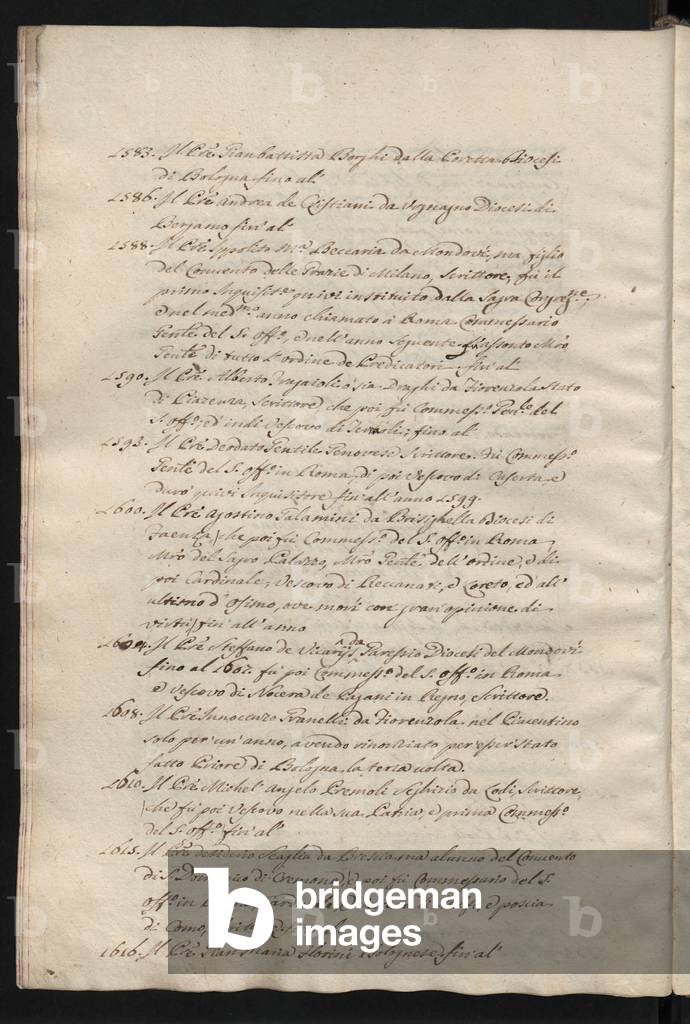 1583. Il Pre Gianbattista Borghi dalla Poretta Diocesi
di Bologna fino al
1586. Il Pre Andrea de Cristiani da Diocesi di
Bergamo fin' al
1588. Il Pre Ippolito Ma. Beccaria da Mondovì, ma figlio
del Convento delle Grazie di Milano, Scrittore, fù il
primo Inquisitre quivi instituito dalla Sagra Congrezne,
e nel medmo anno chiamato à Roma Commessario
Gentle del S. Offo, e nell'anno seguente assonto Mro
Gentle di tutto l'ordine de Predicatori fin' al
1590. Il Pre Alberto ò sia Draghi da Fiorenzola Stato
di Piazenza, Scrittore, che poi fù Commesso Genle del
S. Offo, ed indi Vescovo di fino al
1592. Il Pre Deodato Gentile Genovese Scrittore. Fù Commesso
Gentle del S. Offo in Roma, di poi Vescovo di Caserta, e
durò quivi Inquisitore fin' all'anno 1599.
1600. Il Pre Agostino Galamini da Brisighella Diocesi di
Faenza, che poi fù Commesso del S. Offo in Roma
Mro del Sagro Palazzo, Mro Gentle dell'ordine, e di
poi Cardinale, Vescovo di Reccanati, e Loreto, ed all'
ultimo d'Osimo, ove morì con gran opinione di
fin' all'anno
1604. Il Pre Steffano de Vicarijs da Garessio Diocesi del Mondovì
fino al 1607. fù poi Commesso del S. Offo in Roma
e Vescovo di Nocera de Pagani in Regno, Scrittore.
1608. Il Pre Innocenzo da Fiorenzola nel Piacentino
solo per un' anno, avendo rinonziato per esser stato
fatto Priore di Bologna la terza volta.
1610. Il Pre Michel' Angelo Premoli Seghizio da Lodi, Scrittore,
che fù poi Vescovo nella sua Patria, e prima Commesso
del S. Offo fin' al
1615. Il Pre desiderio Scaglia da Brescia ma alunno del Convento
di S. Domenico di Cremona, e poi fù Commessario del S.
Offo in e poscia
di Como,
1616. Il Pre Gian Maria Florini Bolognese fin' al
b
bridgeman
images